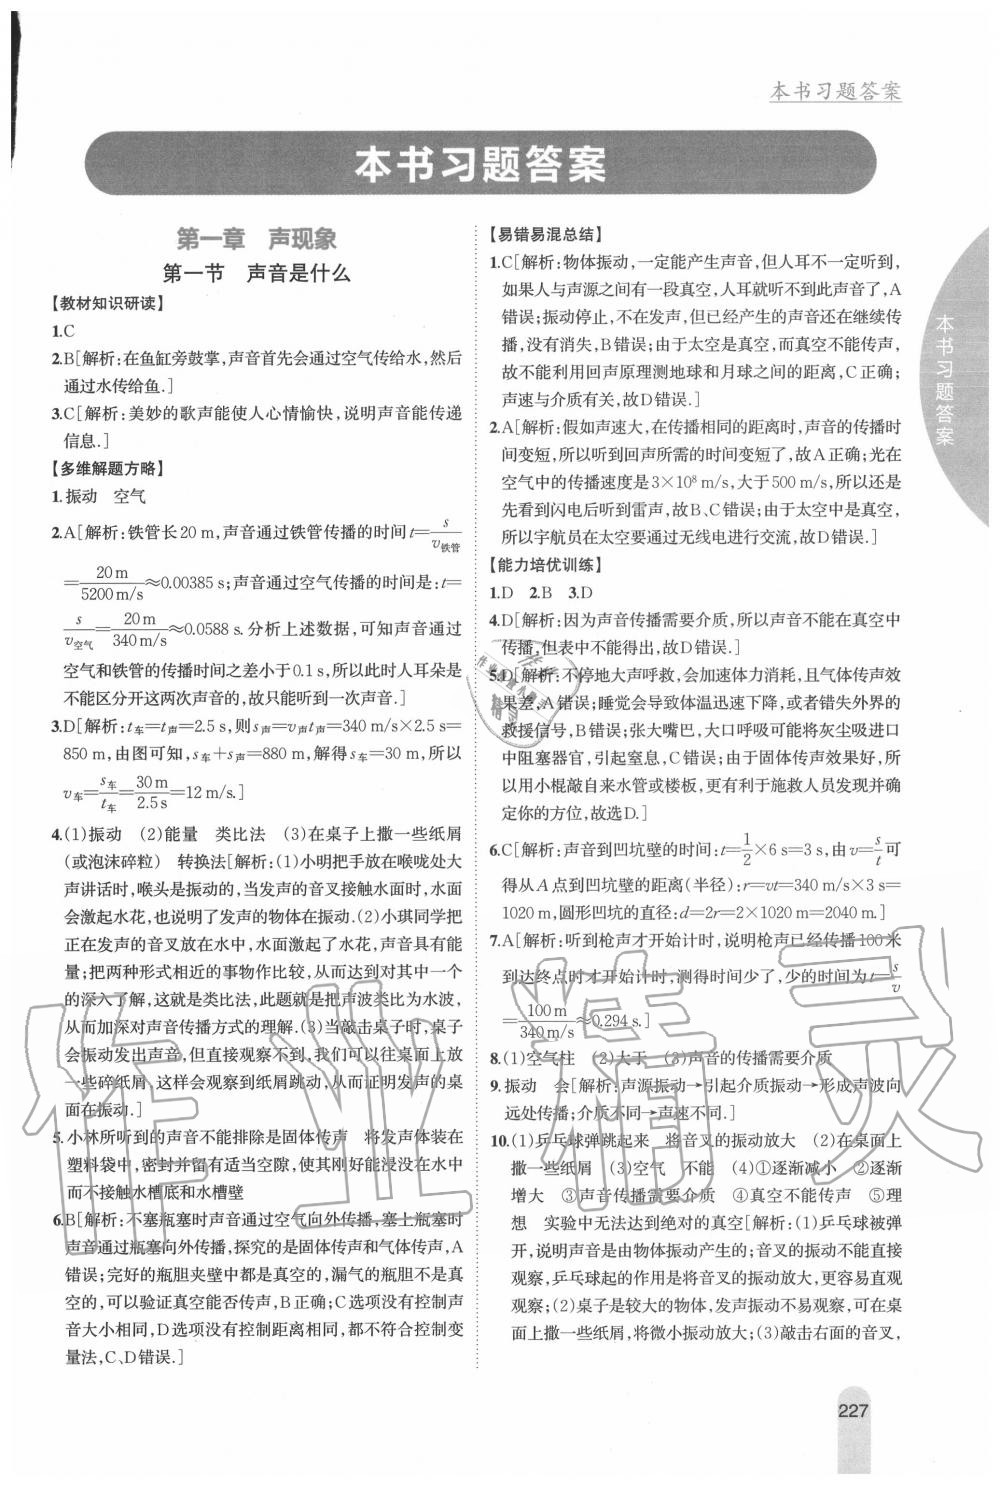 本书习题答案
本书习题答案
第一章　声现象
第一节　声音是什么
【教材知识研读】
1.C
2.B[解析:在鱼缸旁鼓掌,声音首先会通过空气传给水,然后
通过水传给鱼.]
3.C[解析:美妙的歌声能使人心情愉快,说明声音能传递
信息.]
【多维解题方略】
1.振动　空气
2.A[解析:铁管长20 m,声音通过铁管传播的时间t=s/v铁管
=20 m/5200 m/s≈0.00385 s;声音通过空气传播的时间是:t=
s/v空气=20 m/340 m/s≈0.0588 s.分析上述数据,可知声音通过
空气和铁管的传播时间之差小于0.1 s,所以此时人耳朵是
不能区分开这两次声音的,故只能听到一次声音.]
3.D[解析:t车=t声=2.5 s,则s声=v声t声=340 m/s×2.5 s=
850 m,由图可知,s车+s声=880 m,解得s车=30 m,所以
v车=s车/t车=30 m/2.5 s=12 m/s.]
4.(1)振动　(2)能量　类比法　(3)在桌子上撒一些纸屑
(或泡沫碎粒)　转换法[解析:(1)小明把手放在喉咙处大
声讲话时,喉头是振动的,当发声的音叉接触水面时,水面
会激起水花,也说明了发声的物体在振动.(2)小琪同学把
正在发声的音叉放在水中,水面激起了水花,声音具有能
量;把两种形式相近的事物作比较,从而达到对其中一个
的深入了解,这就是类比法,此题就是把声波类比为水波,
从而加深对声音传播方式的理解.(3)当敲击桌子时,桌子
会振动发出声音,但直接观察不到,我们可以往桌面上放
一些碎纸屑,这样会观察到纸屑跳动,从而证明发声的桌
面在振动.]
5.小林所听到的声音不能排除是固体传声　将发声体装在
塑料袋中,密封并留有适当空隙,使其刚好能浸没在水中
而不接触水槽底和水槽壁
6.B[解析:不塞瓶塞时声音通过空气向外传播,塞上瓶塞时
声音通过瓶塞向外传播,探究的是固体传声和气体传声,A
错误;完好的瓶胆夹壁中都是真空的,漏气的瓶胆不是真
空的,可以验证真空能否传声,B正确;C选项没有控制声
音大小相同,D选项没有控制距离相同,都不符合控制变
量法,C、D错误.]
【易错易混总结】
1.C[解析:物体振动,一定能产生声音,但人耳不一定听到,
如果人与声源之间有一段真空,人耳就感觉不到声音了,A
错误;振动停止,不在发声,但已经产生的声音还在继续传
播,没有消失,B错误;由于太空是真空,而真空不能传声,
故不能利用回声原理测地球和月球之间的距离,C正确;
声速与介质有关,故D错误.]
2.A[解析:假如声速大,在传播相同的距离时,声音的传播时
间变短,所以听到回声所需的时间变短,故A正确;光在
空气中的传播速度是3×10⁸ m/s,大于500 m/s,所以还是
先看到闪电后听到雷声,故B、C错误;由于太空中是真空,
所以宇航员在太空要通过无线电进行交流,故D错误.]
【能力培优训练】
1.D　2.B　3.D
4.D[解析:因为声音传播需要介质,所以声音不能在真空中
传播,但表中不能得出,故D错误.]
5.D[解析:不停地大声呼救,会加速体力消耗,且气体传声效
果差,A错误;睡觉会导致体温迅速下降,或者错失外界的
救援信号,B错误;张大嘴巴,大口呼吸可能将灰尘吸进口
中阻塞器官,引起窒息,C错误;由于固体传声效果好,所
以用小棍敲自来水管或楼板,更有利于施救人员发现并确
定你的方位,故选D.]
6.C[解析:声音到凹坑壁的时间:t=1/2×6 s=3 s,由v=s/t可
得从A点到凹坑壁的距离(半径):r=vt=340 m/s×3 s=
1020 m,圆形凹坑的直径:d=2r=2×1020 m=2040 m.]
7.A[解析:听到枪声才开始计时,说明枪声已经传播100米
到达终点时才开始计时,测得时间少了,少的时间为t=s/v
=100 m/340 m/s≈0.294 s.]
8.(1)空气柱　(2)大于　(3)声音的传播需要介质
9.振动　会[解析:声源振动→引起介质振动→形成声波向
远处传播;介质不同→声速不同.]
10.(1)乒乓球弹跳起来　将音叉的振动放大　(2)在桌面上
撒一些纸屑　(3)空气　不能　(4)①逐渐减小　②逐渐
增大　③声音传播需要介质　④真空不能传声　⑤理
想　实验中无法达到绝对的真空[解析:(1)乒乓球被弹
开,说明声音是由物体振动产生的;音叉的振动不能直接
观察,乒乓球起的作用是将音叉的振动放大,更容易直观
观察;(2)桌子是较大的物体,发声振动不易观察,可在桌
面上撒一些纸屑,将微小振动放大;(3)敲击右面的音叉,
本书习题答案
227
作业精灵